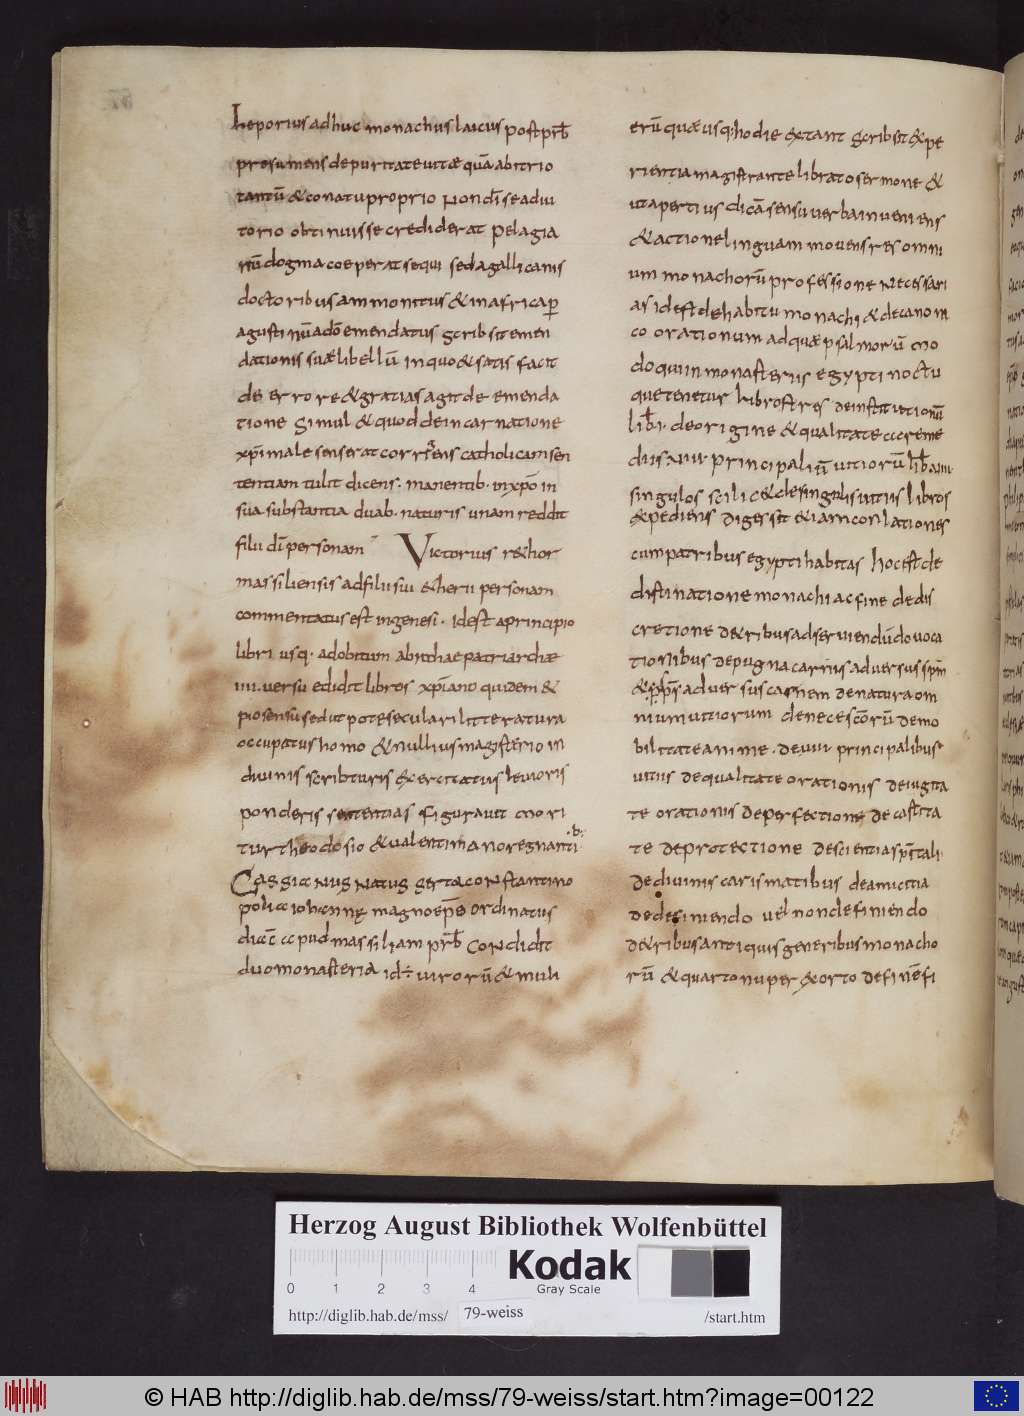 Leporius adhuc monachus laicus post prb̄
presumens de puritate uitæ quā abitrio
tantū & conatu proprio non dī se adiu
torio obtinuisse crediderat pelagia
nū dogma coeperat sequi sed a gallicanis
doctoribus ammonitus & in africa ꝑ
agustinū adō emendatus scribsit emen
dationis suæ libellū in quo & satis facit
de errore & gratias agit de emenda
tione simul & quod de incarnatione
xp̄i male senserat corriens catholicam sen
tentiam tulit dicens· manentib· in xp̄o in
sua substantia duab· naturis unam reddit
filii dī personam Victorius rethor
massiliensis ad filii sui etherii personam
commentatus est in genesi· id est a principio
libri usq· ad obitum abrahae patriarchæ
iiii· uersu edidit libros xp̄iano quidem &
pio sensu sed ut pote seculari litteratura
occupatus homo & nullius magisterio in
diuinis scribturis exercitatus leuioris
ponderis sententias figurauit mori
tur theodosio & ualentinano regnanti·b;
Cassianus natus serta constantino
poli a iohanne magno ep̄o ordinatus
diac̄ apud massiliam prb̄ condidit
duo monasteria id ÷ uirorū & muli
erū quæ usq· hodie extant scribsit expe
rientia magistrante librato sermone &
ut apertius dicā sensu uerba inueniens
& actione linguam mouens res omni
um monachorū professione necessari
as id est de habitu monachi & de canoni
co orationum adquæ psalmorū mo
do qui in monasteriis egypti noctu
que tenetur libros tres de institutionū
lib̄i· de origine & qualitate ac reme
diis· uiii· principaliū uitiorū lib̄
singulos scilicet de singulis uitiis libros
expediens digessit & iam conlationes
cum patribus egypti habitas hoc est de
distinatione monachi ac fine de dis
cretione de tribus ad seruiendū dō uoca
tionibus de pugna carnis aduersus spm̄
& sps̄ aduersus carnem de natura om
nium uitiorum de nece scōrū de mo
bilitate anime· de uiii principalibus
uitiis de qualitate orationis de iugita
te orationis de perfectione de castita
te de protectione de scientia sp̄tali·
de diuinis carismatibus de amicitia
de definiendo uel non definiendo
de tribus antiquis generibus monacho
rū & quarto nuper exorto de finē fi
Herzog August Bibliothek Wolfenbüttel
0 1 2 3 4
Kodak
Gray Scale
http://diglib.hab.de/mss/ 79-weiss /start.htm
© HAB http://diglib.hab.de/mss/79-weiss/start.htm?image=00122